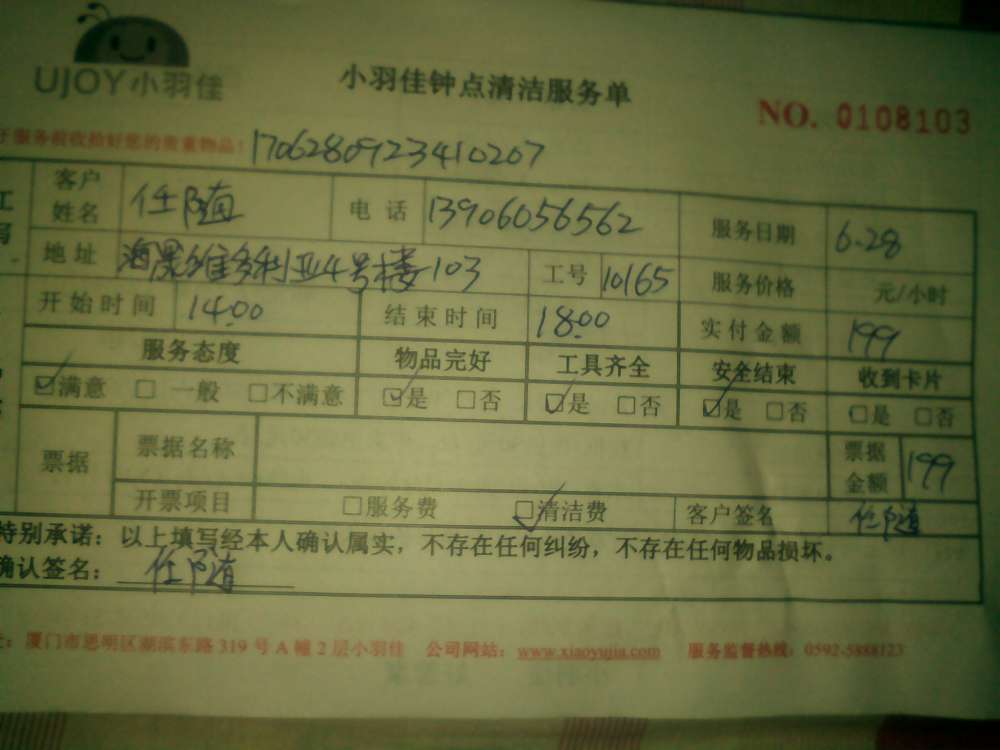 UJOY小羽佳
小羽佳钟点清洁服务单
NO. 0108103
服务前收拾好您的贵重物品!
1706280923410207
客户姓名 任随 电话 13906056562 服务日期 6.28
地址 维多利亚4号楼103 工号 10165 服务价格 元/小时
开始时间 14:00 结束时间 18:00 实付金额 199
服务态度 物品完好 工具齐全 安全结束 收到卡片
☑满意 □一般 □不满意 ☑是 □否 ☑是 □否 ☑是 □否 □是 □否
票据 票据名称 票据金额 199
开票项目 □服务费 ☑清洁费 客户签名 任随
特别承诺：以上填写经本人确认属实，不存在任何纠纷，不存在任何物品损坏。
确认签名： 任随
厦门市思明区湖滨东路 319 号 A 幢 2 层小羽佳 公司网站：www.xiaoyujia.com 服务监督热线：0592-5888123